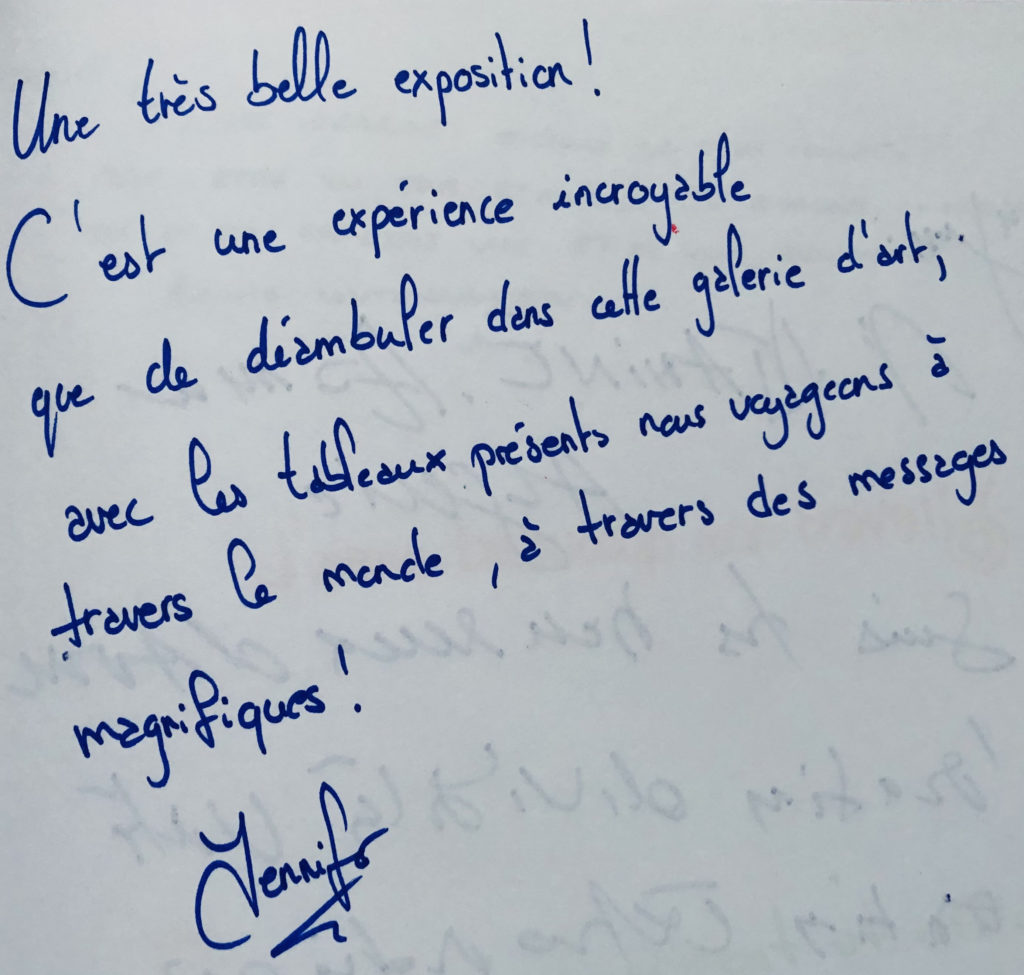 Une très belle exposition !
C'est une expérience incroyable
que de déambuler dans cette galerie d'art,
avec les tableaux présents nous voyageons à
travers le monde, à travers des messages
magnifiques !
Jennifer